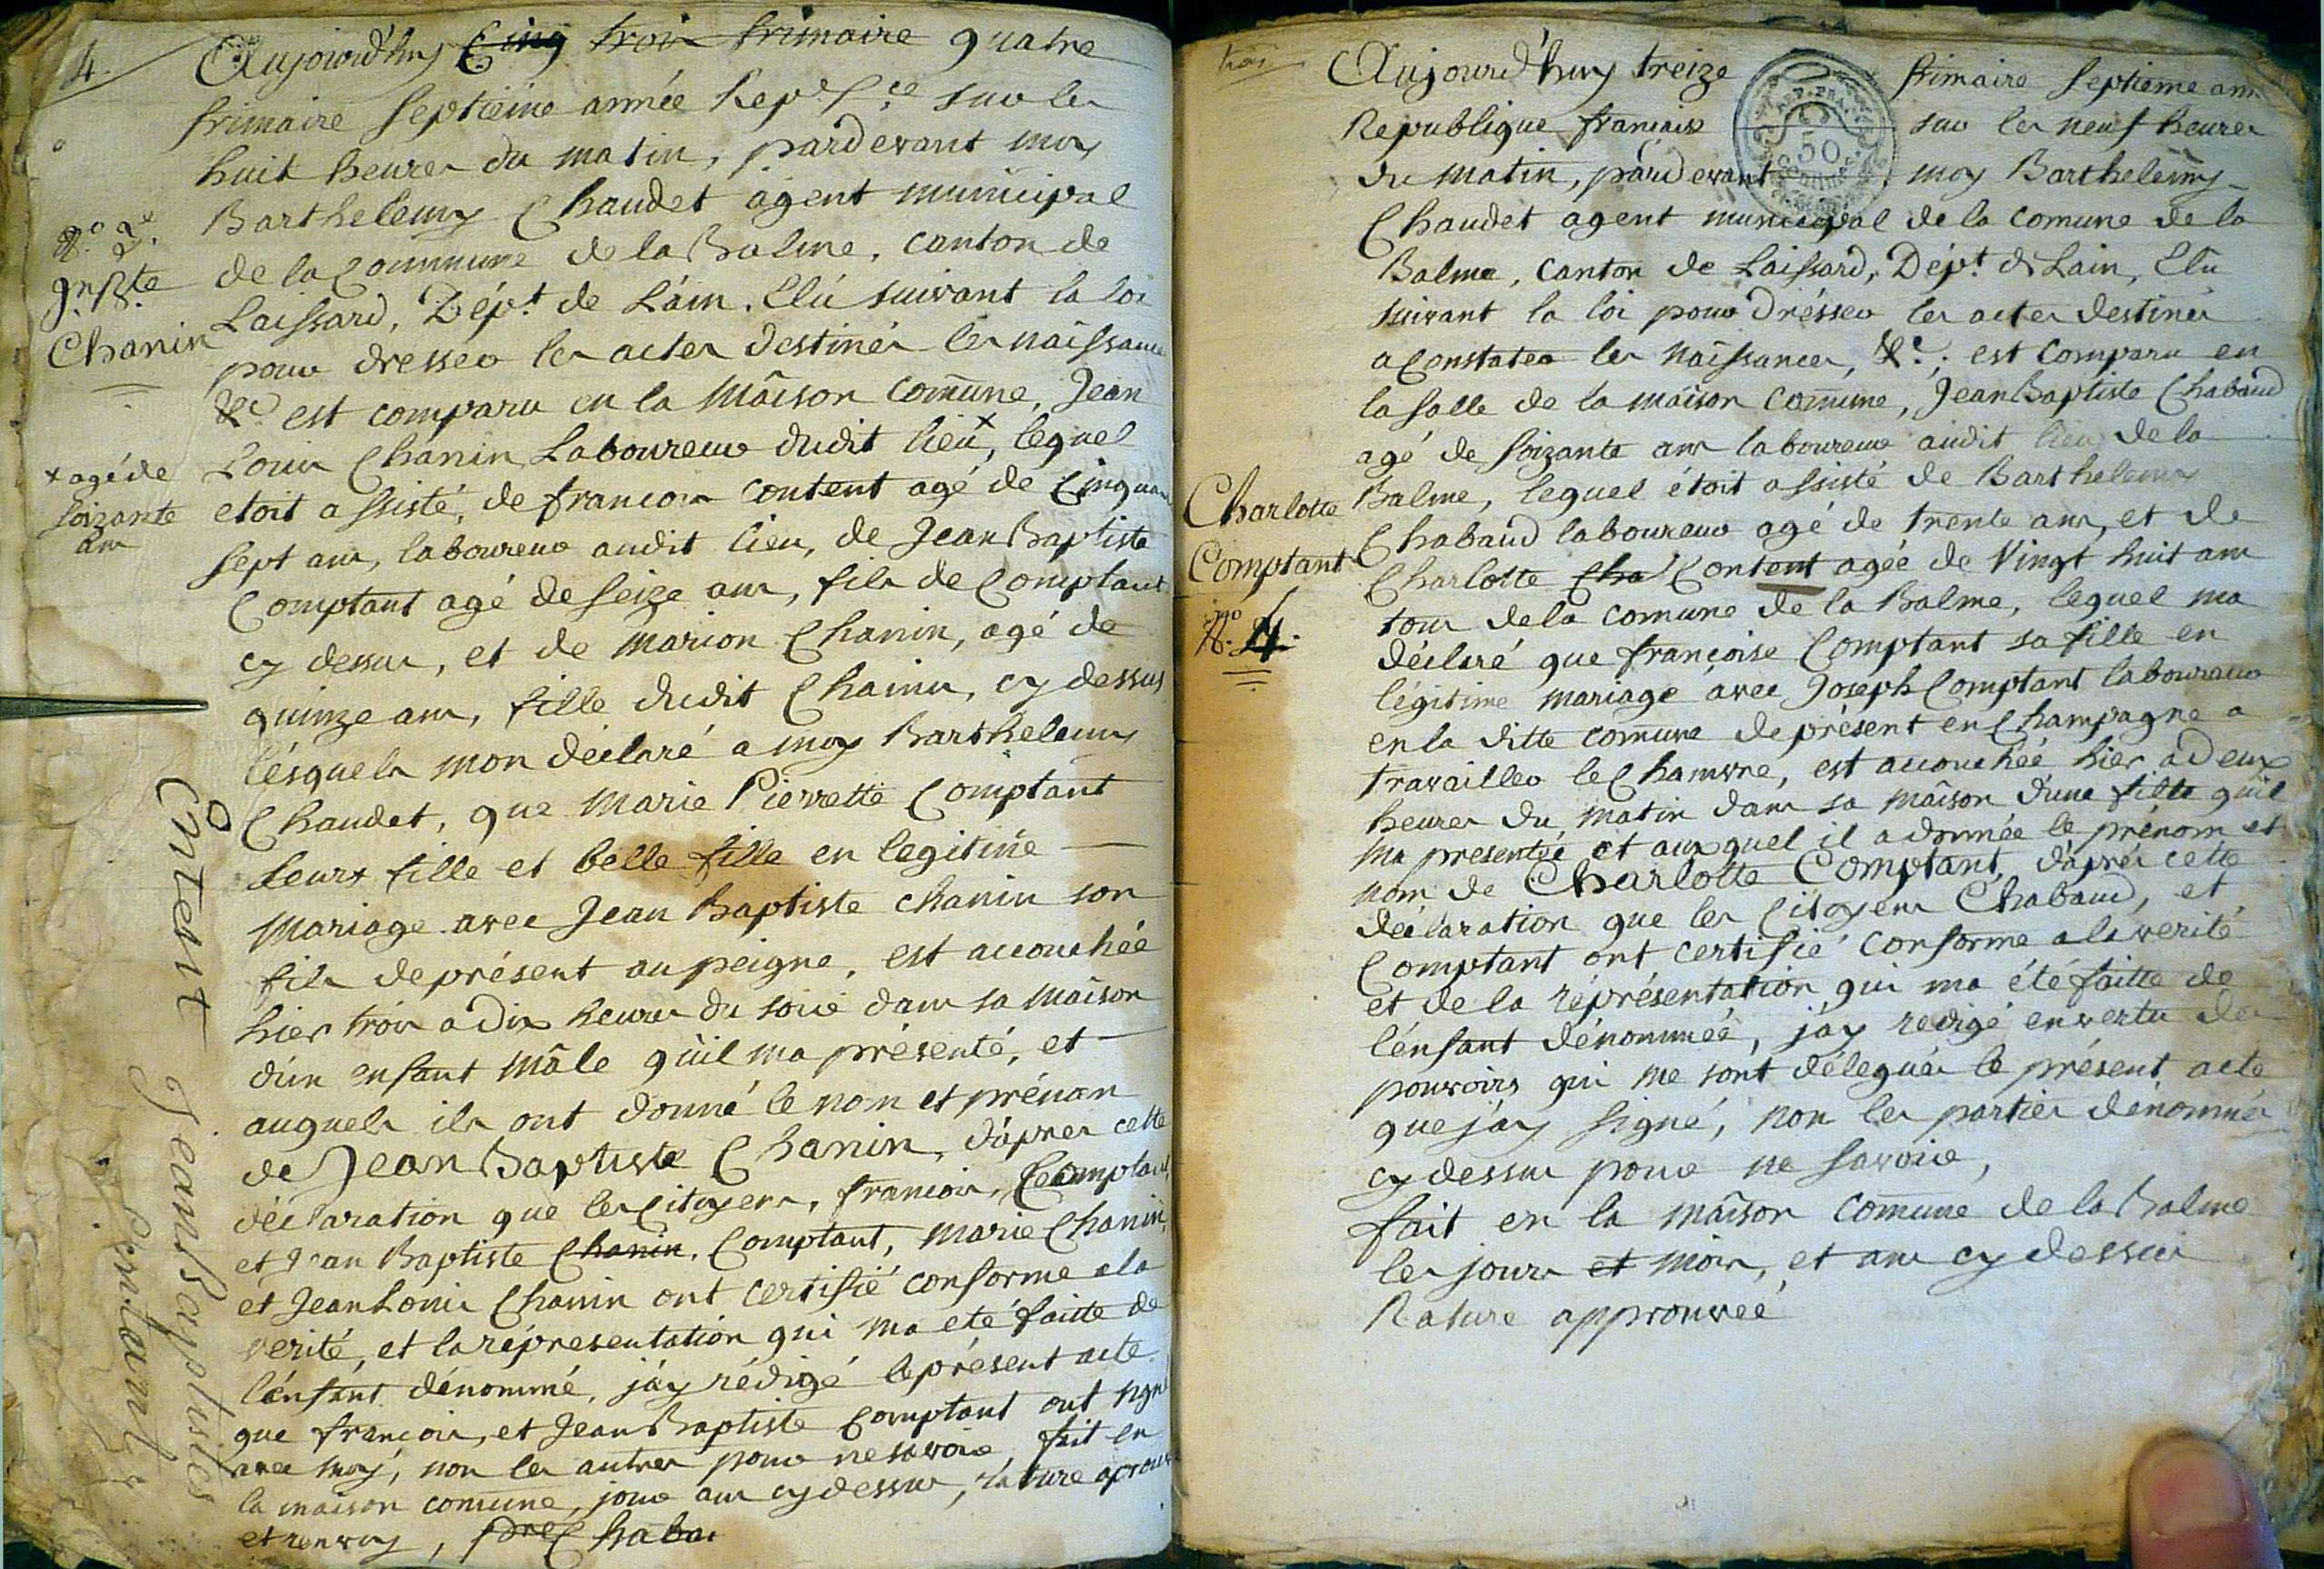 4.
Aujourd'huy Cinq trois frimaire quatre
frimaire septième année Rep. sur les
huit heures du matin, pardevant moy
Barthelemy Chaudet agent municipal
de la Commune de la Balme, canton de
Laissard, Dép.t de L'ain. Elú suivant la loi
pour dresser les actes destinés les naissances
&c est comparu en la Maison Comune, Jean
Louis Chanin Laboureur dudit lieu x, lequel
etoit assisté, de francois Content agé de Cinquante
sept ans, laboureur audit lieu, de Jean Baptiste
Comptant agé de seize ans, fils de Comptant
cy dessus, et de Marion Chanin, agé de
quinze ans, fille dudit Chainin, cy dessus
lésquels mon déclaré a moy Barthelemy
Chaudet, que Marie Pierrette Comptant
leurs fille et belle fille en legitime
Mariage avec Jean Baptiste Chanin son
fils de présent au peigne, est accouchée
hier trois a dix heures du soir dans sa Maison
d'un enfant Mâle qu'il ma présenté, et
auquels ils ont donné le nom et prénom
de Jean Baptiste Chanin, d'après cette
déclaration que les Citoyens, francois, Comptant,
et Jean Baptiste Chanin, Comptant, Marie Chanin,
et Jean Louis Chanin ont certifié conforme ala
verité, et la réprésentation qui ma eté faitte de
l'énfant dénommé, j'ay rédigé le présent acte
que francois, et Jean Baptiste Comptant ont signé
avec moy, non les autres pour ne savoir, fait en
la maison comune, jour ans cy dessus, rature aprouvé
et renvoy,
N.o 2.e
Jn Bte
Chanin
x agé de
soizante
ans
Content jean Baptistes
Contant
Aujourd'huy treize frimaire septieme année
Republique francaise sur les neuf heures
du matin, pardevant moy Barthelemy
Chaudet agent municipal de la comune de la
Balme, Canton de Laissard, Dép.t de Lain, Elú
suivant la loi pour drésser les actes destinés
a Constater les Naissances, &c; est comparu en
la salle de la maison Comune, Jean Baptiste Chabaud
agé de soizante ans laboureur audit lieu de la
Balme, lequel étoit assisté de Barthelemy
Chabaud laboureur agé de trente ans, et de
Charlotte Cha Content agée de Vingt huit ans
tous de la comune de la Balme, lequel ma
déclaré que françoise Comptant sa fille en
légitime mariage avec Joseph Comptant laboureur
en la ditte comune de présent en Champagne a
travailler le Chamvre, est accouchée hier à deux
heures du matin dans sa maison d'une fille qu'il
ma presentée et auxquel il a donnée le prénom et
nom de Charlotte Comptant, d'après cette
déclaration que les Citoyens Chabaud, et
Comptant ont certifié conforme ala verité
et de la réprésentation qui ma été faitte de
l'énfant dénommée, j'ay redigé en vertu des
pouvoirs qui me sont délégués le présent acte
que j'ay signé, non les parties dénommés
cy dessus pour ne savoir,
fait en la maison Comune de la Balme
les jours et mois, et ans cy dessus
Rature approuvée
REP. FRA.
50
Centimes
Charlotte
Comptant
N.o 4.